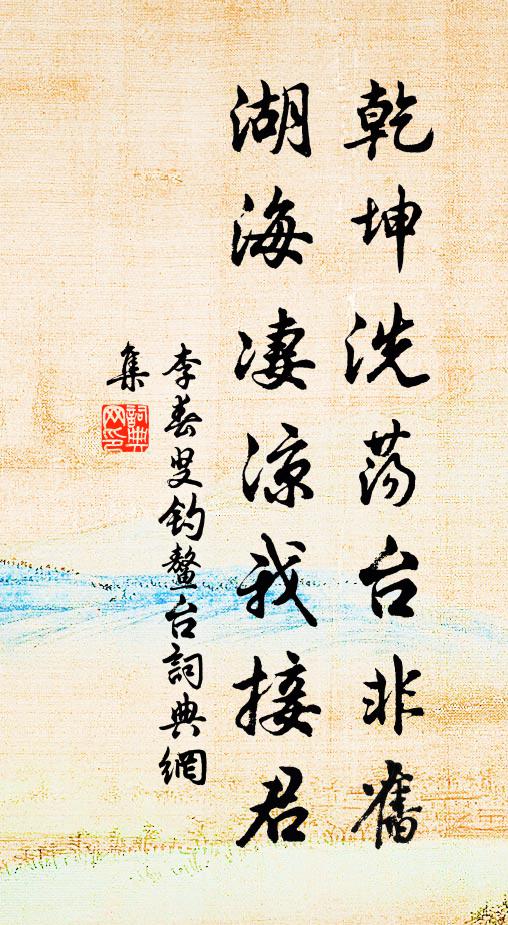 乾坤洗荡台非舊
湖海凄凉我接君
李春叟钓鳌台詞典網
集
詞典
网印